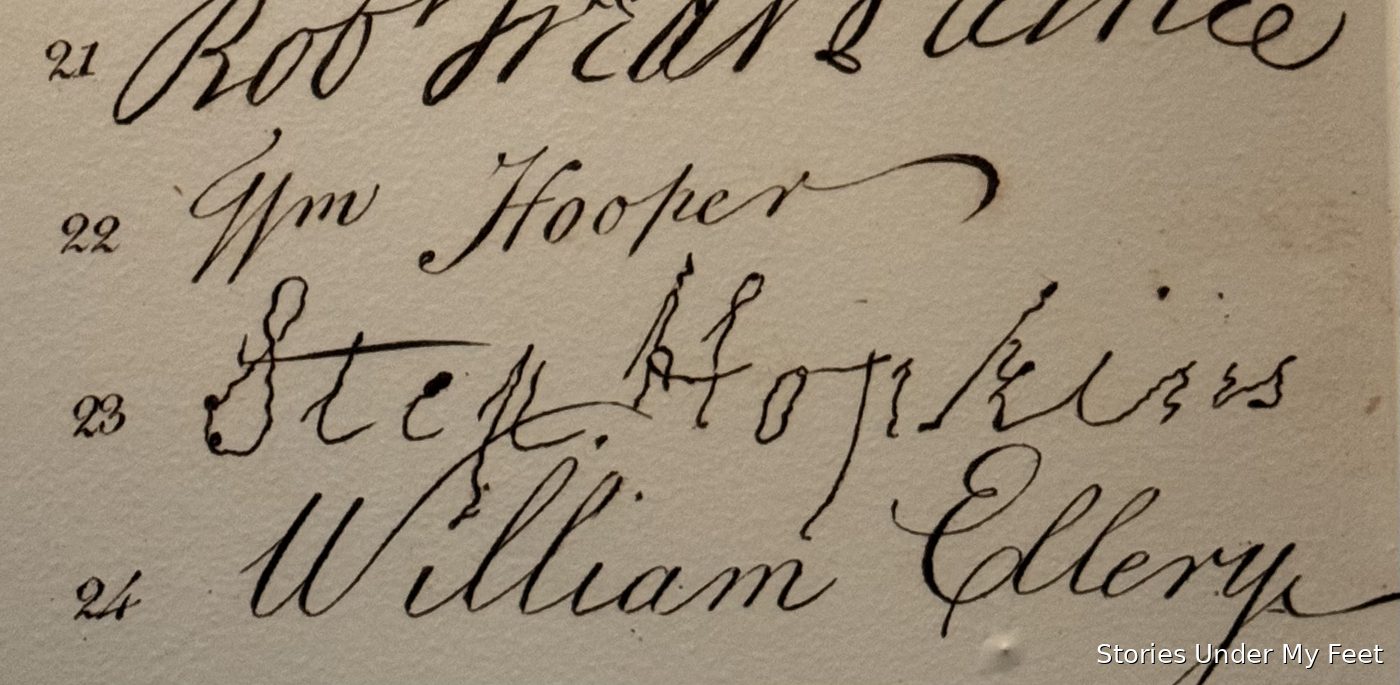 21 Rob Treat Paine
22 Wm Hooper
23 Step. Hopkins
24 William Ellery
Stories Under My Feet